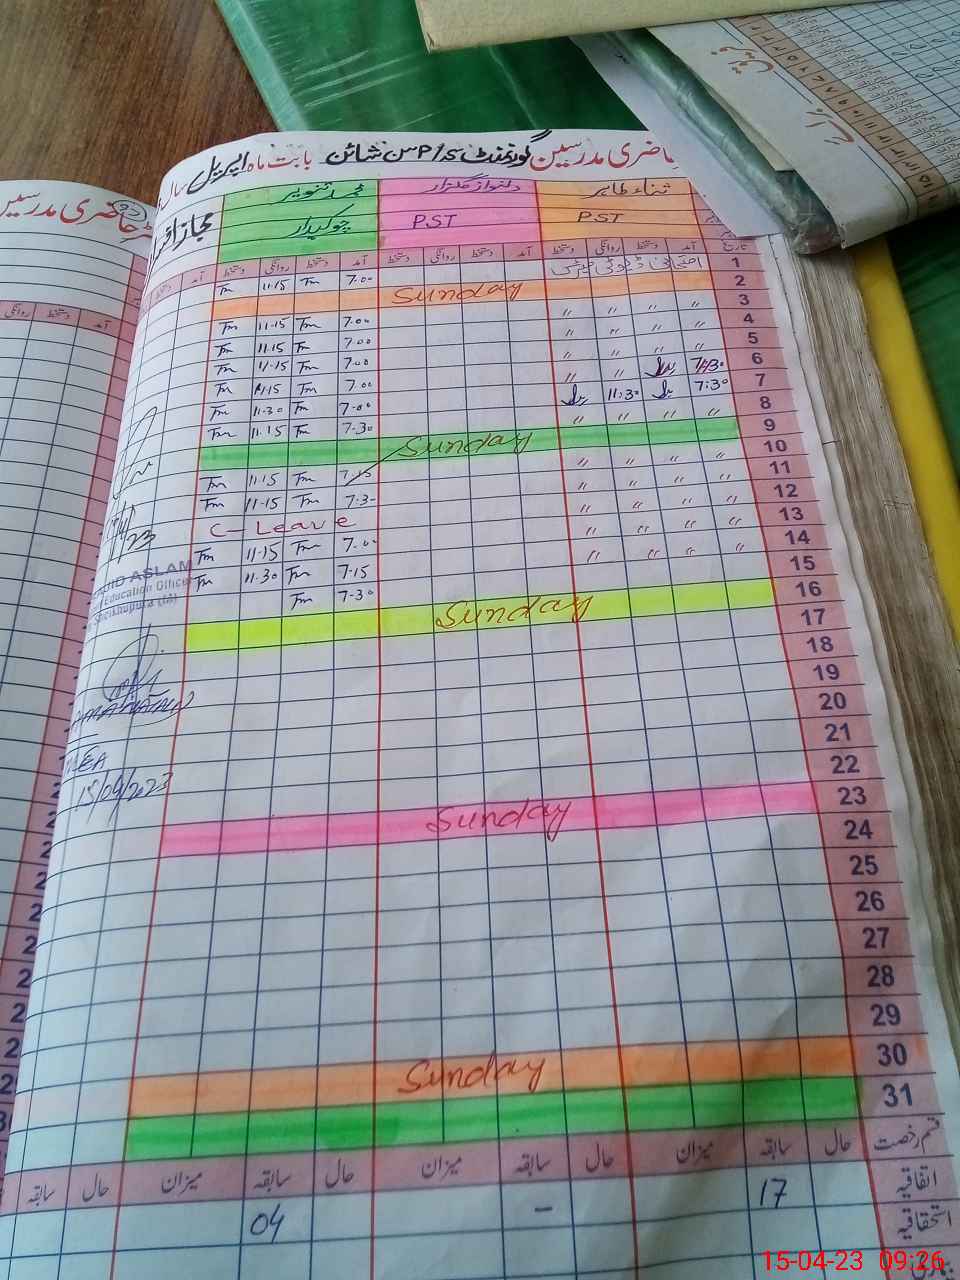 حاضری مدرسین گورنمنٹ بابت ماہ اپریل سال
ثناء طاہر دلنواز گلزار محمد تنویر
PST PST چوکیدار
تاریخ آمد دستخط روانگی دستخط آمد دستخط روانگی دستخط آمد دستخط روانگی دستخط آمد
1 7.00 Tm 11.15 Tm
2 Sunday
3 " " " " 7.00 Tm 11.15 Tm
4 " " " " 7.00 Tm 11.15 Tm
5 " " " " 7.00 Tm 11.15 Tm
6 7:30 " " 7.00 Tm 11.15 Tm
7 7:30 11:30 7.00 Tm 11.30 Tm
8 " " " " 7.30 Tm 11.15 Tm
9 Sunday
10 " " " " 7.15 Tm 11.15 Tm
11 " " " " 7.30 Tm 11.15 Tm
12 " " " " C-Leave
13 " " " " 7.00 Tm 11.15 Tm
14 " " " " 7.15 Tm 11.30 Tm
15 7.30 Tm
16 Sunday
17
18
19
20
21
22
23 Sunday
24
25
26
27
28
29
30 Sunday
31
قسم رخصت حال سابقہ میزان حال سابقہ میزان حال سابقہ میزان حال سابقہ
اتفاقیہ 17 - 04
استحقاقیہ
ASLAM
Education Officer
Sheikhupura (M)
15/04/2023
حاضری مدرسین
آمد دستخط روانگی
15-04-23 09:26